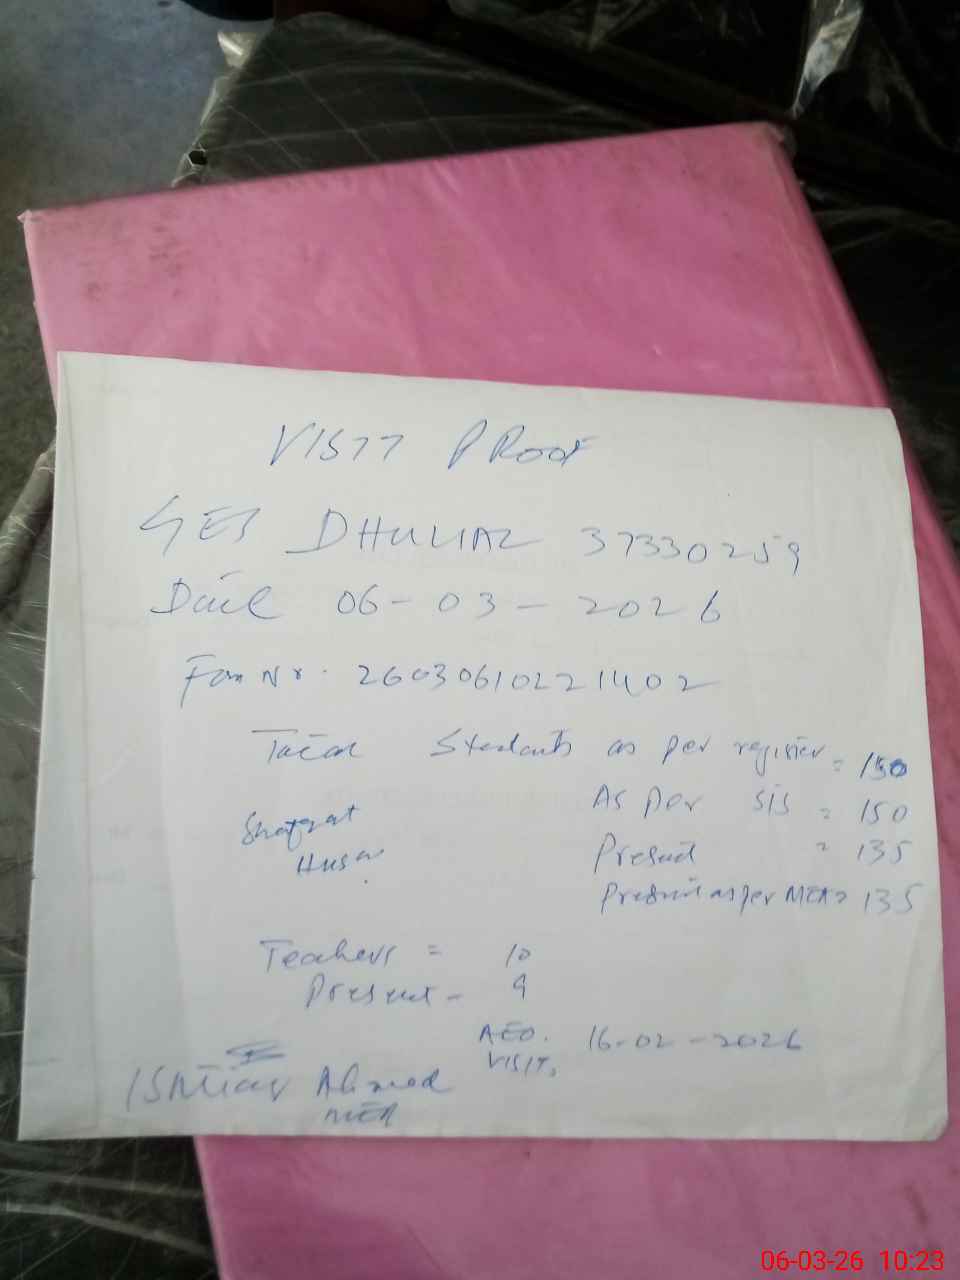 VISIT PROOF
GES DHULIAL 37330259
Date 06-03-2026
Form Nr. 26030610221402
Total Students as per register = 150
As per SIS = 150
Shafqat
Husain
Present = 135
Present as per MEA = 135
Teachers = 10
Present - 9
AEO. 16-02-2026
VISIT.
Ishtiaq Ahmed
MEA
06-03-26 10:23